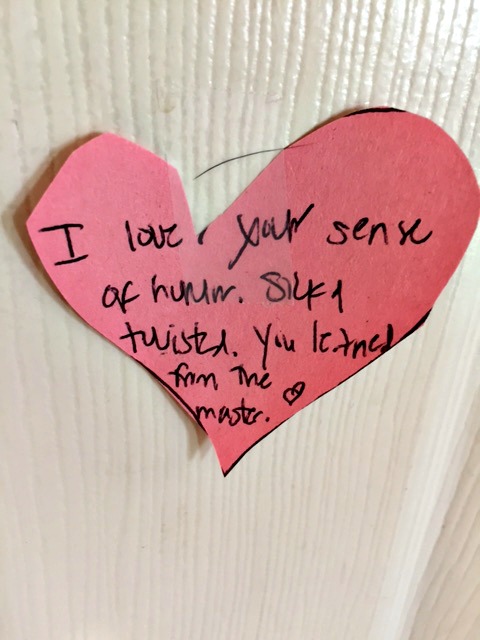 I love your sense
of humor. Sick &
twisted. You learned
from The
master.